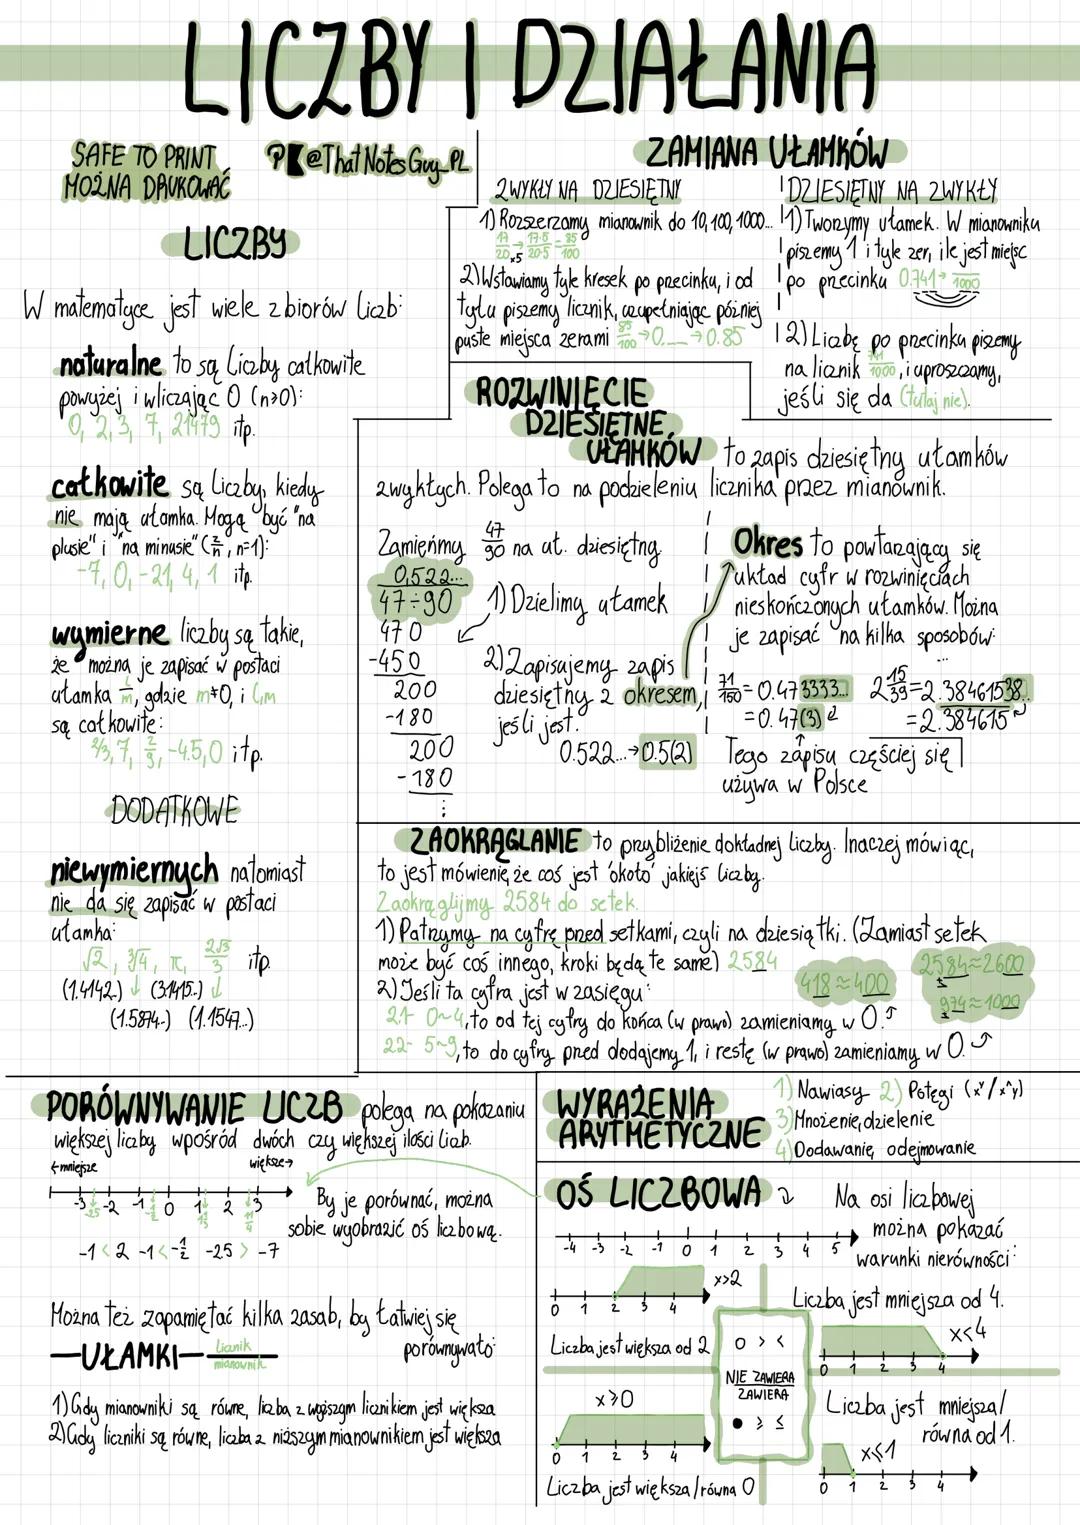 LICZBY I DZIAŁANIA
SAFE TO PRINT
MOŻNA DRUKOWAĆ
@ThatNotesGuy_PL
LICZBY
W matematyce jest wiele zbiorów liczb:
naturalne to są liczby całkowite
powyżej i wliczając 0 (n≥0):
0, 2, 3, 7, 21479 itp.
całkowite są liczby, kiedy
nie mają ułamka. Mogą być "na
plusie" i "na minusie" (z/n, n=1):
-7, 0, -21, 4, 1 itp.
wymierne liczby są takie,
że można je zapisać w postaci
ułamka l/m, gdzie m≠0, i l,m
są całkowite:
2/3, 7, 2/9, -4.5, 0 itp.
DODATKOWE
niewymiernych natomiast
nie da się zapisać w postaci
ułamka:
√2, ∛4, π, 2√3/3 itp.
(1.4142..) (3.1415..)
(1.5874..) (1.1547...)
ZAMIANA UŁAMKÓW
ZWYKŁY NA DZIESIĘTNY
1) Rozszerzamy mianownik do 10, 100, 1000...
17/20 ×5 → 17·5/20·5 = 85/100
2) Wstawiamy tyle kresek po przecinku, i od
tyłu piszemy licznik, uzupełniając później
puste miejsca zerami 85/100 → 0.__ → 0.85
DZIESIĘTNY NA ZWYKŁY
1) Tworzymy ułamek. W mianowniku
piszemy 1 i tyle zer, ile jest miejsc
po przecinku 0.741 → /1000
2) Liczbę po przecinku piszemy
na licznik 741/1000, i uproszczamy,
jeśli się da (tutaj nie).
ROZWINIĘCIE
DZIESIĘTNE
UŁAMKÓW to zapis dziesiętny ułamków
zwykłych. Polega to na podzieleniu licznika przez mianownik.
Zamieńmy 47/90 na uł. dziesiętny
0,522...
47÷90
470
-450
200
-180
200
-180
⋮
1) Dzielimy ułamek
2) Zapisujemy zapis
dziesiętny z okresem,
jeśli jest.
0.522... → 0.5(2)
Okres to powtarzający się
układ cyfr w rozwinięciach
nieskończonych ułamków. Można
je zapisać na kilka sposobów:
71/150 = 0.473333...
= 0.47(3)
2 15/39 = 2.38461538...
= 2.384615
Tego zapisu częściej się
używa w Polsce
ZAOKRĄGLANIE to przybliżenie dokładnej liczby. Inaczej mówiąc,
to jest mówienie, że coś jest 'około' jakiejś liczby.
Zaokrąglijmy 2584 do setek.
1) Patrzymy na cyfrę przed setkami, czyli na dziesiątki. (Zamiast setek
może być coś innego, kroki będą te same) 2584
2) Jeśli ta cyfra jest w zasięgu:
2.1- 0~4, to od tej cyfry do końca (w prawo) zamieniamy w 0.
2.2- 5~9, to do cyfry przed dodajemy 1, i resztę (w prawo) zamieniamy w 0.
418≈400
2584≈2600
974≈1000
PORÓWNYWANIE LICZB polega na pokazaniu
większej liczby wpośród dwóch czy większej ilości liczb.
←mniejsze większe→
-3 -2 -1 0 1 2 3
-2.5 -1/2 1 1/3 11/4
-1 < 2 -1 < -1/2 -25 > -7
By je porównać, można
sobie wyobrazić oś liczbową.
Można też zapamiętać kilka zasad, by łatwiej się
porównywało:
—UŁAMKI— licznik/mianownik
1) Gdy mianowniki są równe, liczba z wyższym licznikiem jest większa
2) Gdy liczniki są równe, liczba z niższym mianownikiem jest większa
WYRAŻENIA
ARYTMETYCZNE
1) Nawiasy 2) Potęgi (xʸ/x^y)
3) Mnożenie, dzielenie
4) Dodawanie, odejmowanie
OŚ LICZBOWA
Na osi liczbowej
można pokazać
warunki nierówności:
-4 -3 -2 -1 0 1 2 3 4 5
x>2
0 1 2 3 4
Liczba jest większa od 2
Liczba jest mniejsza od 4.
x<4
0 1 2 3 4
○ > <
NIE ZAWIERA
ZAWIERA
● ≥ ≤
x≥0
0 1 2 3 4
Liczba jest większa/równa 0
Liczba jest mniejsza/
równa od 1.
x≤1
0 1 2 3 4